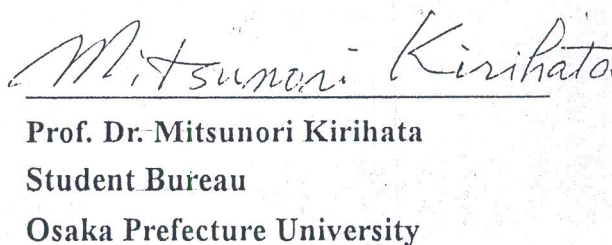 Mitsunori Kirihata
Prof. Dr. Mitsunori Kirihata
Student Bureau
Osaka Prefecture University